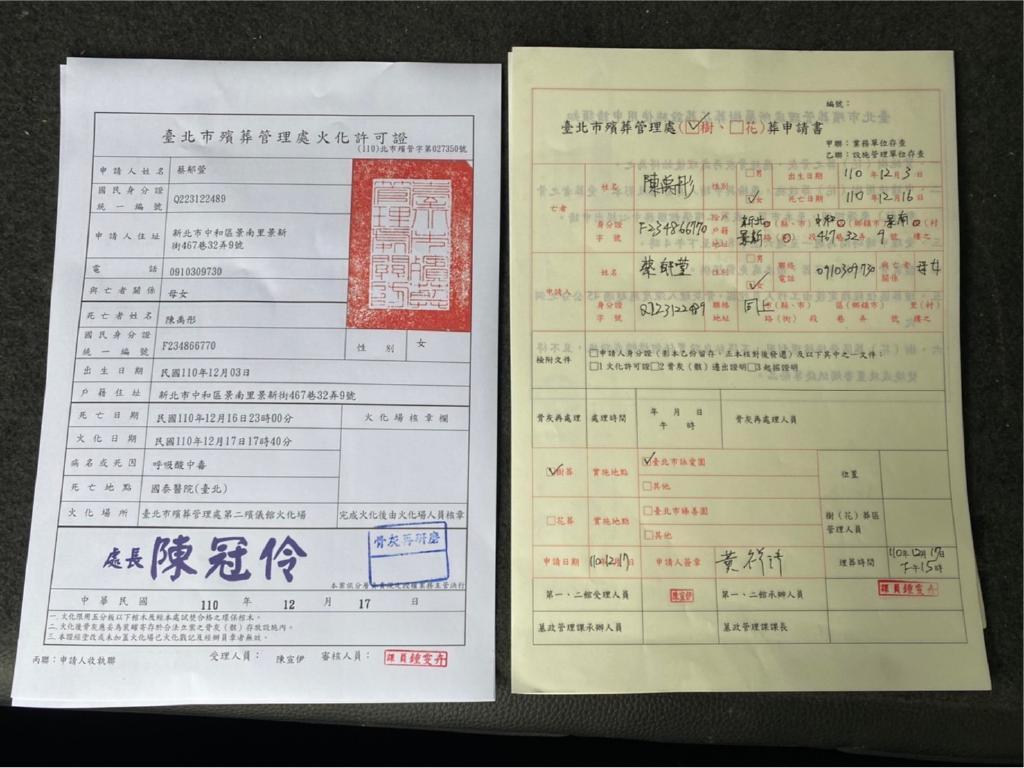 臺北市殯葬管理處火化許可證
(110)北市殯管字第027350號
申請人姓名 蔡郁萱
國民身分證統一編號 Q223122489
申請人住址 新北市中和區景南里景新街467巷32弄9號
電話 0910309730
與亡者關係 母女
死亡者姓名 陳禹彤
國民身分證統一編號 F234866770 性別 女
出生日期 民國110年12月03日
戶籍住址 新北市中和區景南里景新街467巷32弄9號
死亡日期 民國110年12月16日23時00分 火化場核章欄
火化日期 民國110年12月17日17時40分
病名或死因 呼吸酸中毒
死亡地點 國泰醫院(臺北)
火化場所 臺北市殯葬管理處第二殯儀館火化場 完成火化後由火化場人員核章
處長 陳冠伶
骨灰再研磨
中華民國 110 年 12 月 17 日
一.火化限用五分板以下棺木及經本處試焚合格之環保棺木。
二.火化後骨灰應妥為裝罐寄存於合法立案之骨灰(骸)存放設施內。
三.本證經塗改或未加蓋火化場已火化戳記及經辦員章者無效。
丙聯：申請人收執聯 受理人員： 陳宣伊 審核人員： 課員鍾雯卉
編號：
臺北市殯葬管理處(☑樹、□花)葬申請書
甲聯：業務單位存查
乙聯：設施管理單位存查
亡者 姓名 陳禹彤 性別 □男 ☑女 出生日期 110年12月3日
死亡日期 110年12月16日
身分證字號 F234866770 戶籍地址 新北 中和 景南 景新 467巷32弄9號
申請人 姓名 性別 □男 ☑女 聯絡電話 0910309730 與亡者關係 母女
身分證字號 Q223122489 聯絡地址 同上
檢附文件 □申請人身分證(影本乙份留存，正本核對後發還)及以下其中之一文件：
□1火化許可證□2骨灰(骸)遷出證明□3起掘證明
骨灰再處理 處理時間 年 月 日 年 時 骨灰再處理人員
☑樹葬 實施地點 ☑臺北市詠愛園 □其他 位置
□花葬 實施地點 □臺北市臻善園 □其他 樹(花)葬區管理人員
申請日期 110年12月17日 申請人簽章 埋葬時間 110年12月17日 下午15時
第一、二館受理人員 陳宣伊 第一、二館承辦人員 課員鍾雯卉
墓政管理課承辦人員 墓政管理課課長